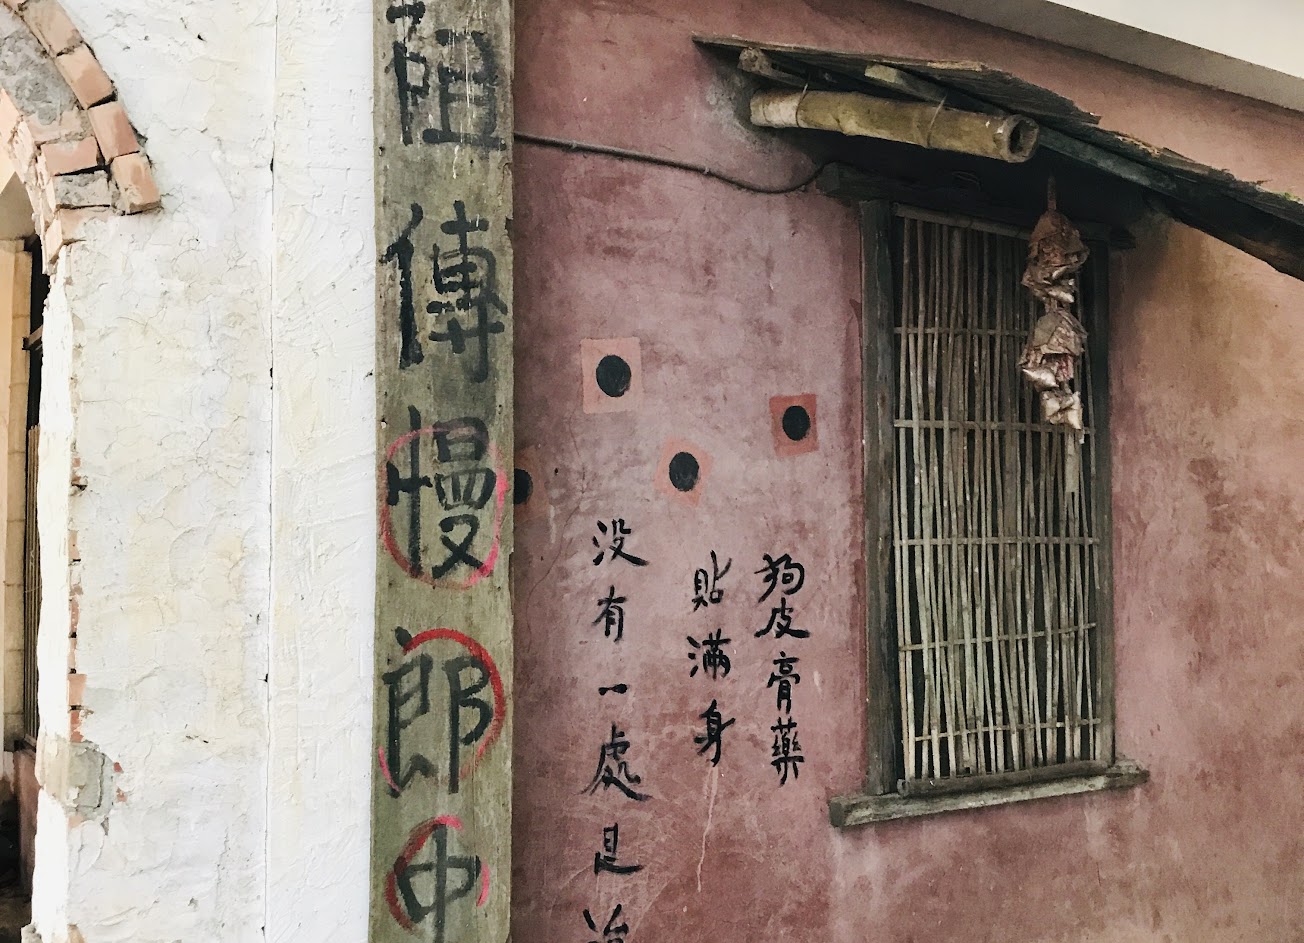 狗皮膏藥
貼滿身
没有一處是
祖傳慢郎中